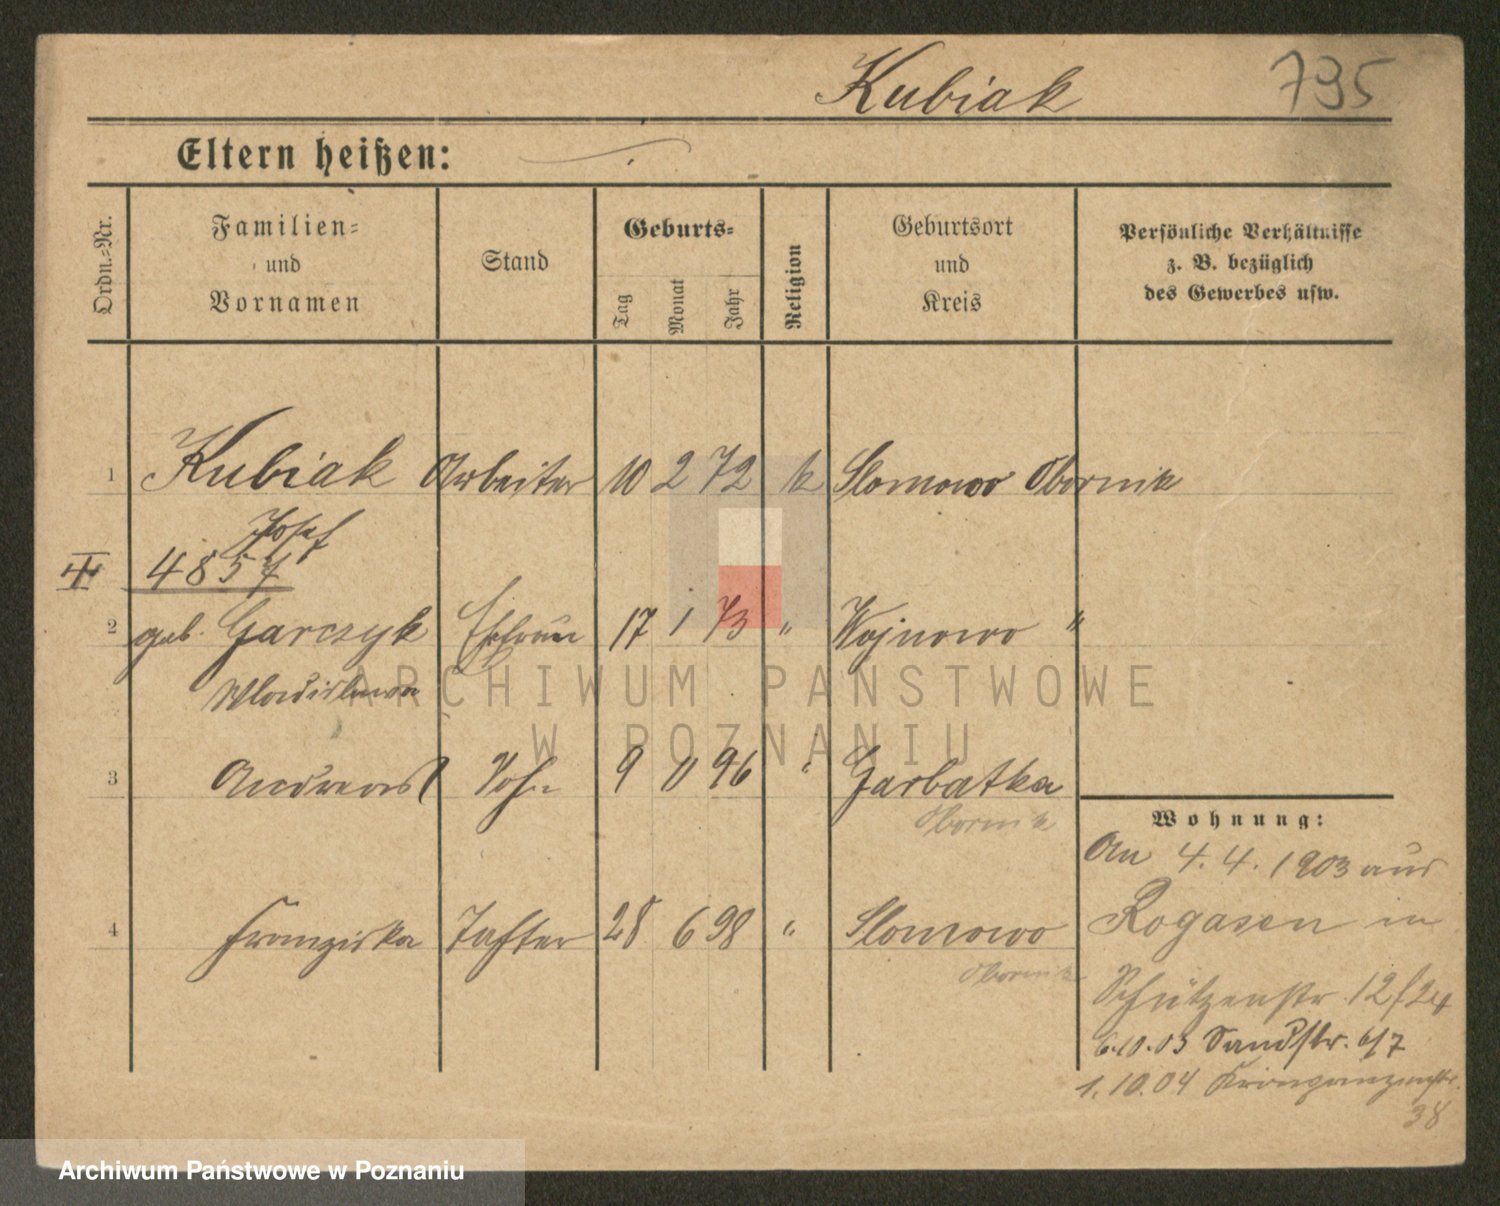 Kubiak 795
Eltern heißen:
Ordn.-Nr.
Familien-
und
Vornamen
Stand
Geburts-
Tag
Monat
Jahr
Religion
Geburtsort
und
Kreis
Persönliche Verhältnisse
z. B. bezüglich
des Gewerbes usw.
1 Kubiak Arbeiter 10 2 72 k Slomowo Obornik
Josef
4857
2 geb. Garczyk Ehefrau 17 1 73 " Wojnowo "
Wladislawa
3 Andreas Sohn 9 11 96 " Garbatka
Obornik
4 Franziska Tochter 28 6 98 " Slomowo
Obornik
Wohnung:
An 4.4.1903 aus
Rogasen in
Schützenstr. 12/24
6.10.03 Sandstr. 6/7
1.10.04 Kronprinzenstr.
38
ARCHIWUM PAŃSTWOWE
W POZNANIU
Archiwum Państwowe w Poznaniu